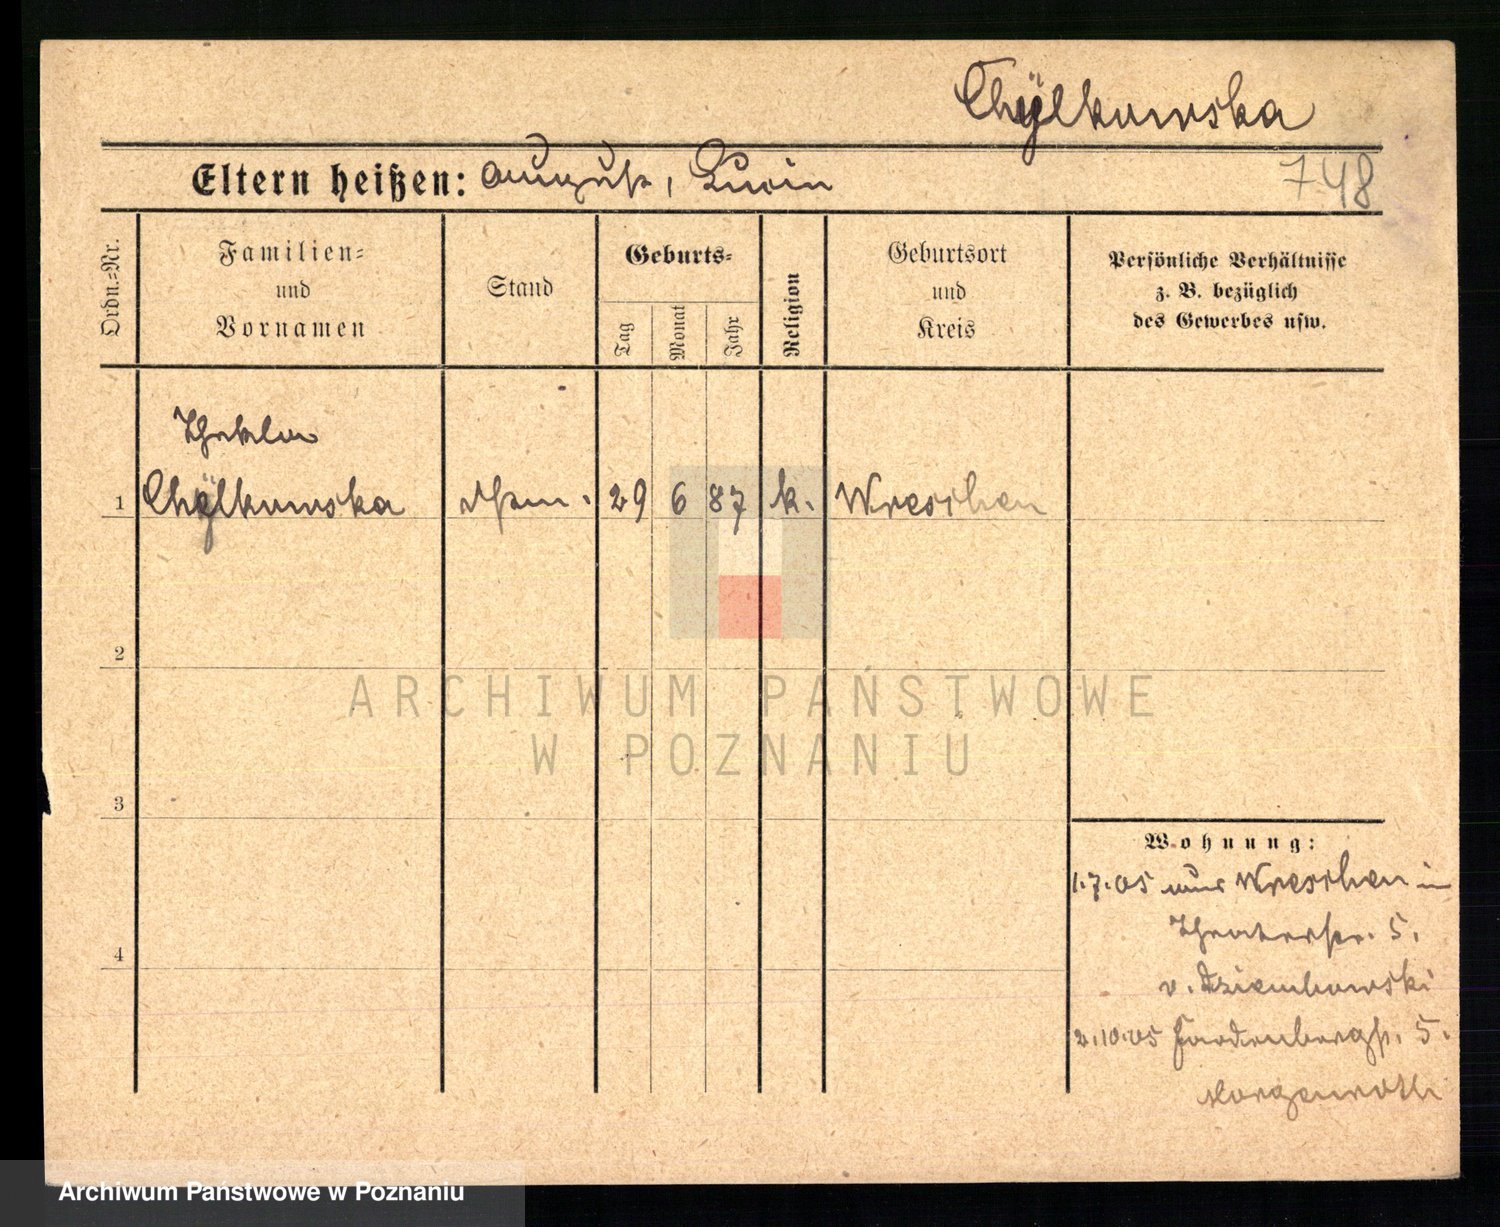 Chÿlkowska
Eltern heißen: August,
748
Ordn.=Nr.
Familien=
und
Vornamen
Stand
Geburts=
Tag
Monat
Jahr
Religion
Geburtsort
und
Kreis
Persönliche Verhältnisse
z. B. bezüglich
des Gewerbes usw.
Thekla
1 Chÿlkowska 29 6 87 k. Wreschen
2
3
4
ARCHIWUM PAŃSTWOWE
W POZNANIU
Wohnung:
1.7.05 aus Wreschen in
Theaterstr. 5.
v. Dziembowski
2.10.05 Hardenbergstr. 5.
Morgenroth
Archiwum Państwowe w Poznaniu